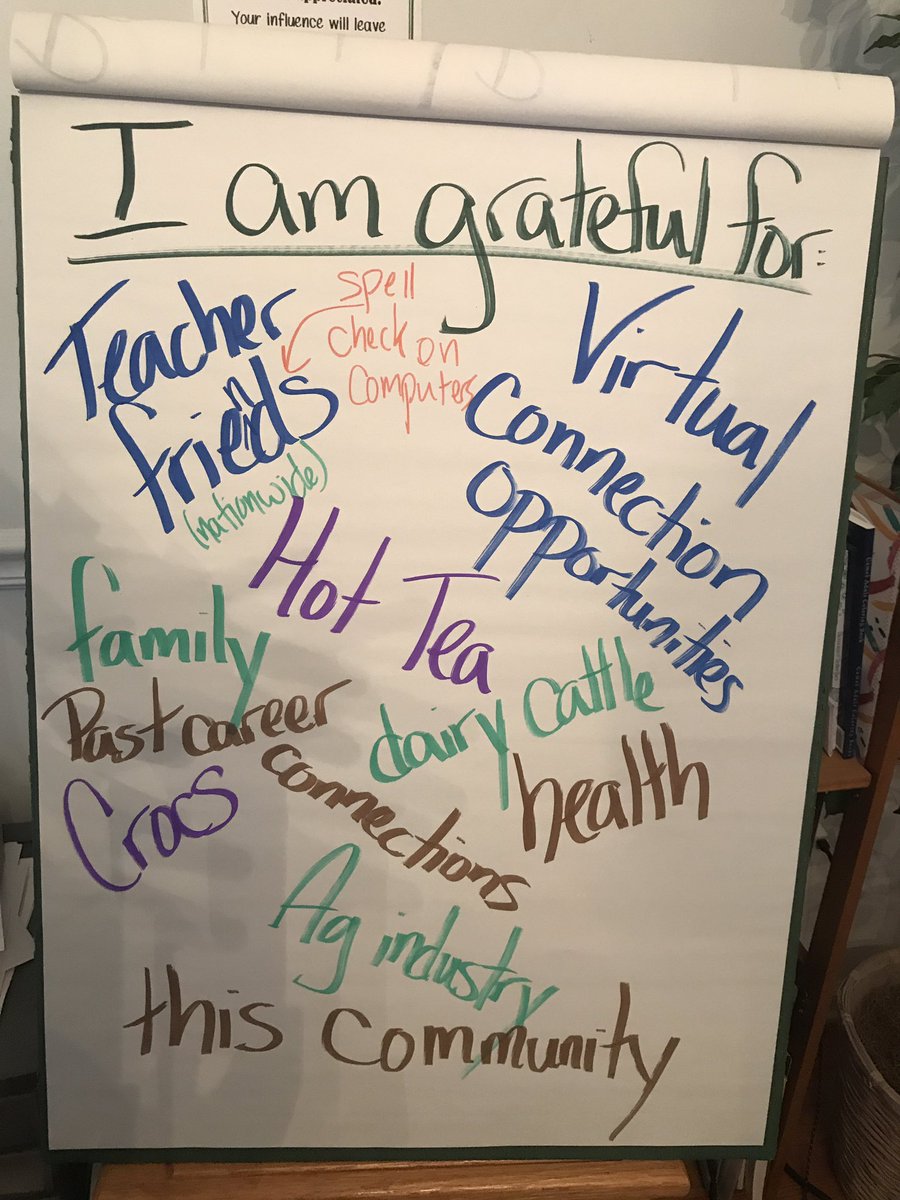 Your influence will leave
I am grateful for:
Teacher
friends
(nationwide)
spell
check on
computers
Virtual
Connection
opportunities
Hot Tea
family
dairy cattle
Past career
connections
health
Crocs
Ag industry
this community